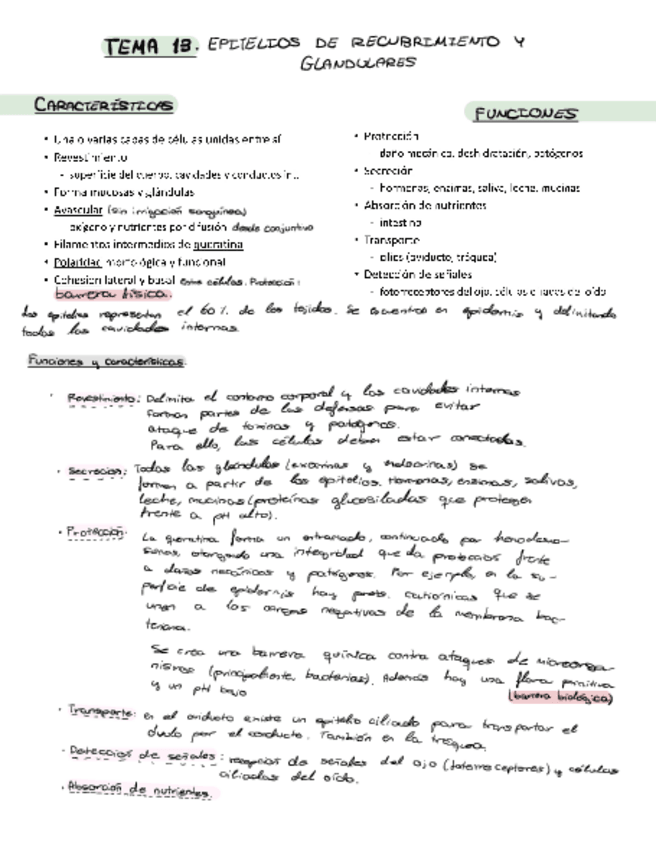 TEMA 13. EPITELIOS DE RECUBRIMIENTO Y
GLANDULARES
CARACTERÍSTICAS
• Una o varias capas de células unidas entre sí
• Revestimiento
- superficie del cuerpo, cavidades y conductos int.
• Forma mucosas y glándulas
• Avascular (sin irrigación sanguínea)
oxígeno y nutrientes por difusión desde conjuntivo
• Filamentos intermedios de queratina
• Polaridad morfológica y funcional
• Cohesion lateral y basal entre células. Protección:
barrera física.
FUNCIONES
• Protección
daño mecánico, deshidratación, patógenos
• Secreción
- hormonas, enzimas, saliva, leche, mucinas
• Absorción de nutrientes
- intestino
• Transporte
- cilios (oviducto, tráquea)
• Detección de señales
- fotorreceptores del ojo, células ciliadas del oído
Los epitelios representan el 60% de los tejidos. Se encuentran en epidermis y delimitando
todas las cavidades internas.
Funciones y características.
· Revestimiento: Delimita el contorno corporal y las cavidades internas
forman partes de las defensas para evitar
ataque de toxinas y patógenos.
Para ello, las células deben estar conectadas.
· Secreción: Todas las glándulas (exocrinas y endocrinas) se
forman a partir de los epitelios. Hormonas, enzimas, salivas,
leche, mucinas (proteínas glucosiladas que protegen
frente a pH alto).
· Protección: La queratina forma un entramado, continuado por hemidesmo-
somas, otorgando una integridad que da protección frente
a daños mecánicos y patógenos. Por ejemplo, en la su-
perficie de epidermis hay prots. catiónicas que se
unen a las cargas negativas de la membrana bac-
teriana.
Se crea una barrera química contra ataques de microorga-
nismos (principalmente bacterias). Además hay una flora primitiva
y un pH bajo (barrera biológica)
· Transporte: en el oviducto existe un epitelio ciliado para transportar el
óvulo por el conducto. También en la tráquea.
· Detección de señales: recepción de señales del ojo (fotorreceptores) y células
ciliadas del oído.
· Absorción de nutrientes.